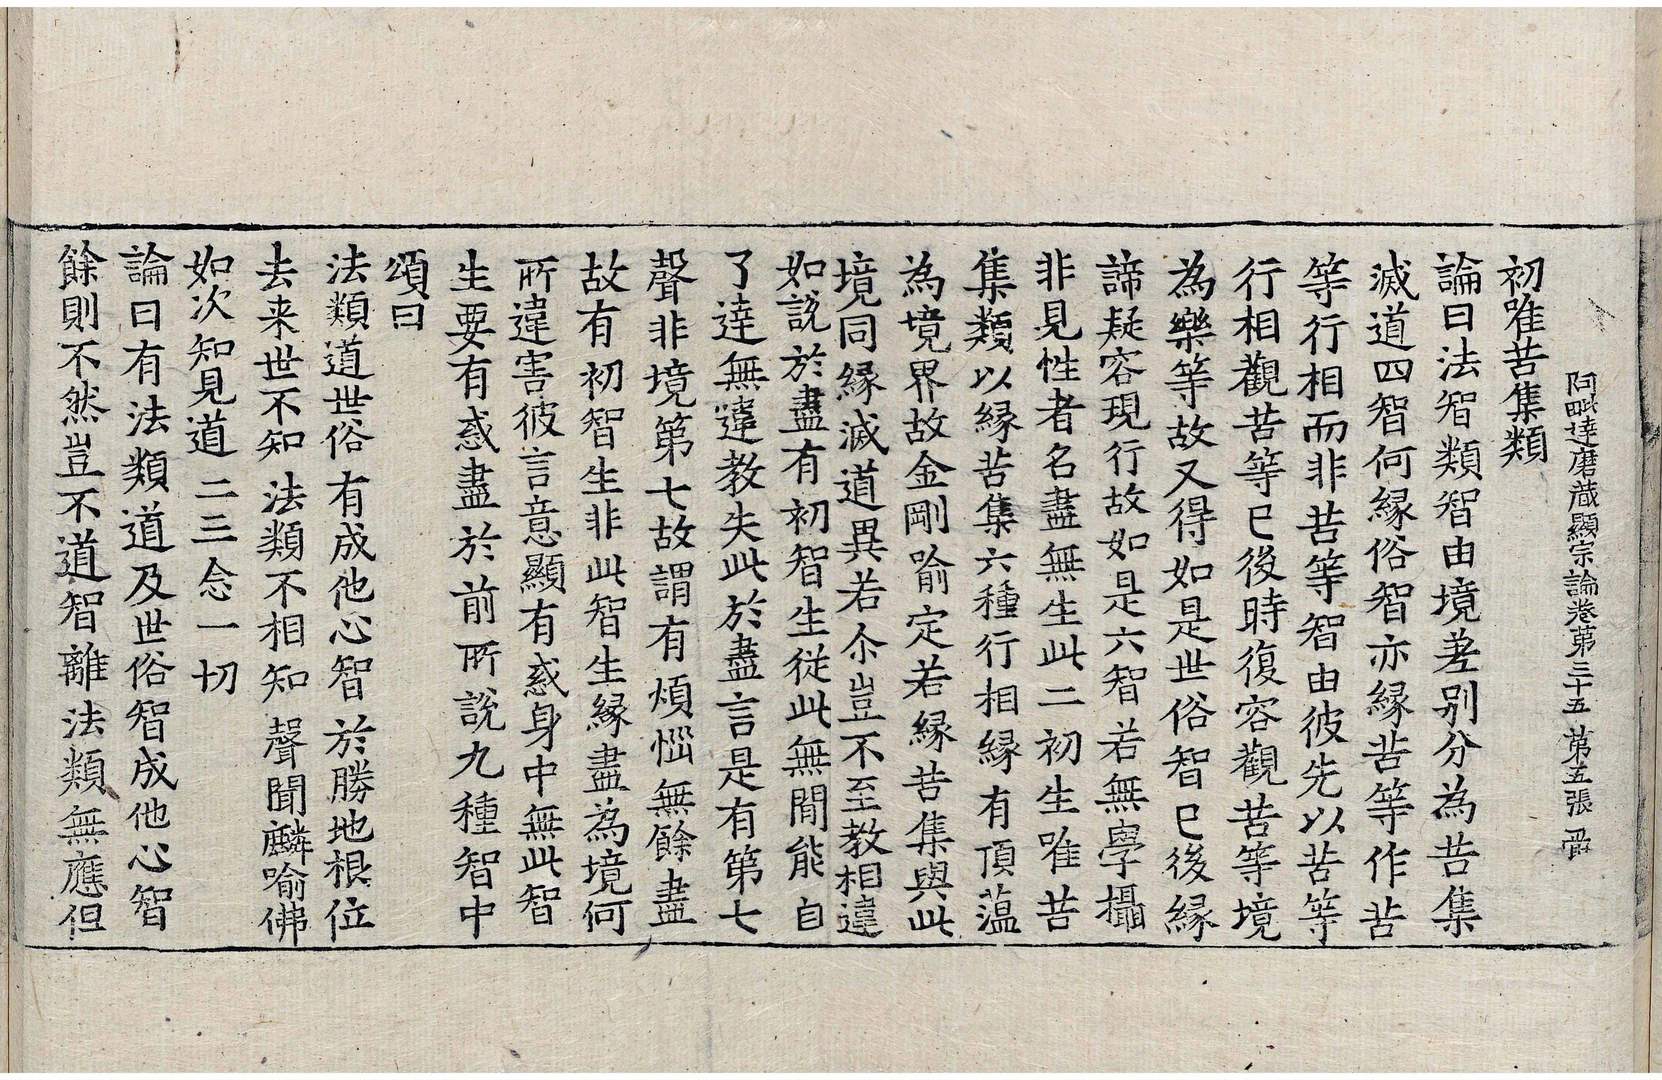 阿毗達磨蔵顯宗論卷第三十五 第五張
初唯苦集類
論曰法智類智由境差別分為苦集
滅道四智何縁俗智亦縁苦等作苦
等行相而非苦等智由彼先以苦等
行相觀苦等已後時復容觀苦等境
為樂等故又得如是世俗智已後縁
諦疑容現行故如是六智若無學攝
非見性者名盡無生此二初生唯苦
集類以縁苦集六種行相縁有頂蕰
為境界故金剛喻定若縁苦集與此
境同縁滅道異若尒豈不至教相違
如說於盡有初智生從此無間能自
了達無違教失此於盡言是有第七
聲非境第七故謂有煩惱無餘盡
故有初智生非此智生縁盡為境何
所違害彼言意顯有惑身中無此智
生要有惑盡於前所說九種智中
頌曰
法類道世俗 有成他心智 於勝地根位
去来世不知 法類不相知 聲聞麟喻佛
如次知見道 二三念一切
論曰有法類道及世俗智成他心智
餘則不然豈不道智離法類無應但